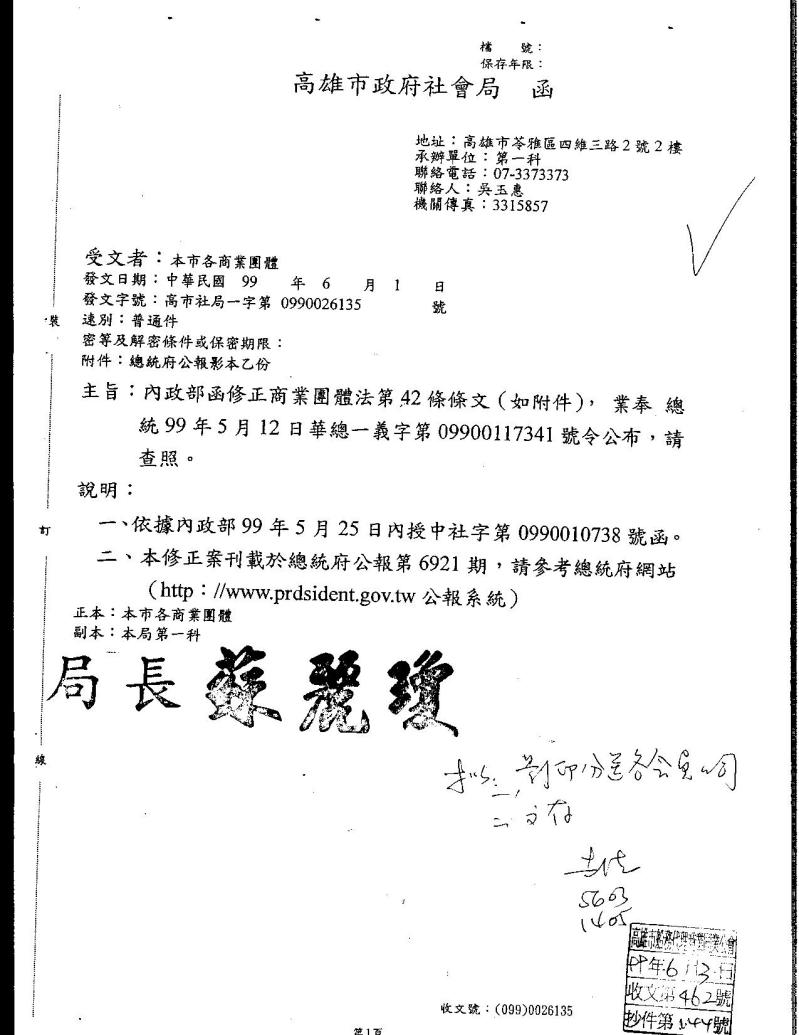 檔　號：
保存年限：
高雄市政府社會局　函
地址：高雄市苓雅區四維三路2號2樓
承辦單位：第一科
聯絡電話：07-3373373
聯絡人：吳玉惠
機關傳真：3315857
受文者：本市各商業團體
發文日期：中華民國 99 年 6 月 1 日
發文字號：高市社局一字第 0990026135 號
速別：普通件
密等及解密條件或保密期限：
附件：總統府公報影本乙份
主旨：內政部函修正商業團體法第42條條文（如附件），業奉 總
統99年5月12日華總一義字第09900117341號令公布，請
查照。
說明：
一、依據內政部99年5月25日內授中社字第0990010738號函。
二、本修正案刊載於總統府公報第6921期，請參考總統府網站
（http：//www.prdsident.gov.tw 公報系統）
正本：本市各商業團體
副本：本局第一科
局長 蘇麗瓊
裝
訂
線
擬：一、影印分送各会員公司
二、文存
5603
1405
高雄市船務代理商業同業公會
99年6月3日
收文第462號
抄件第144號
收文號：(099)0026135
第1頁